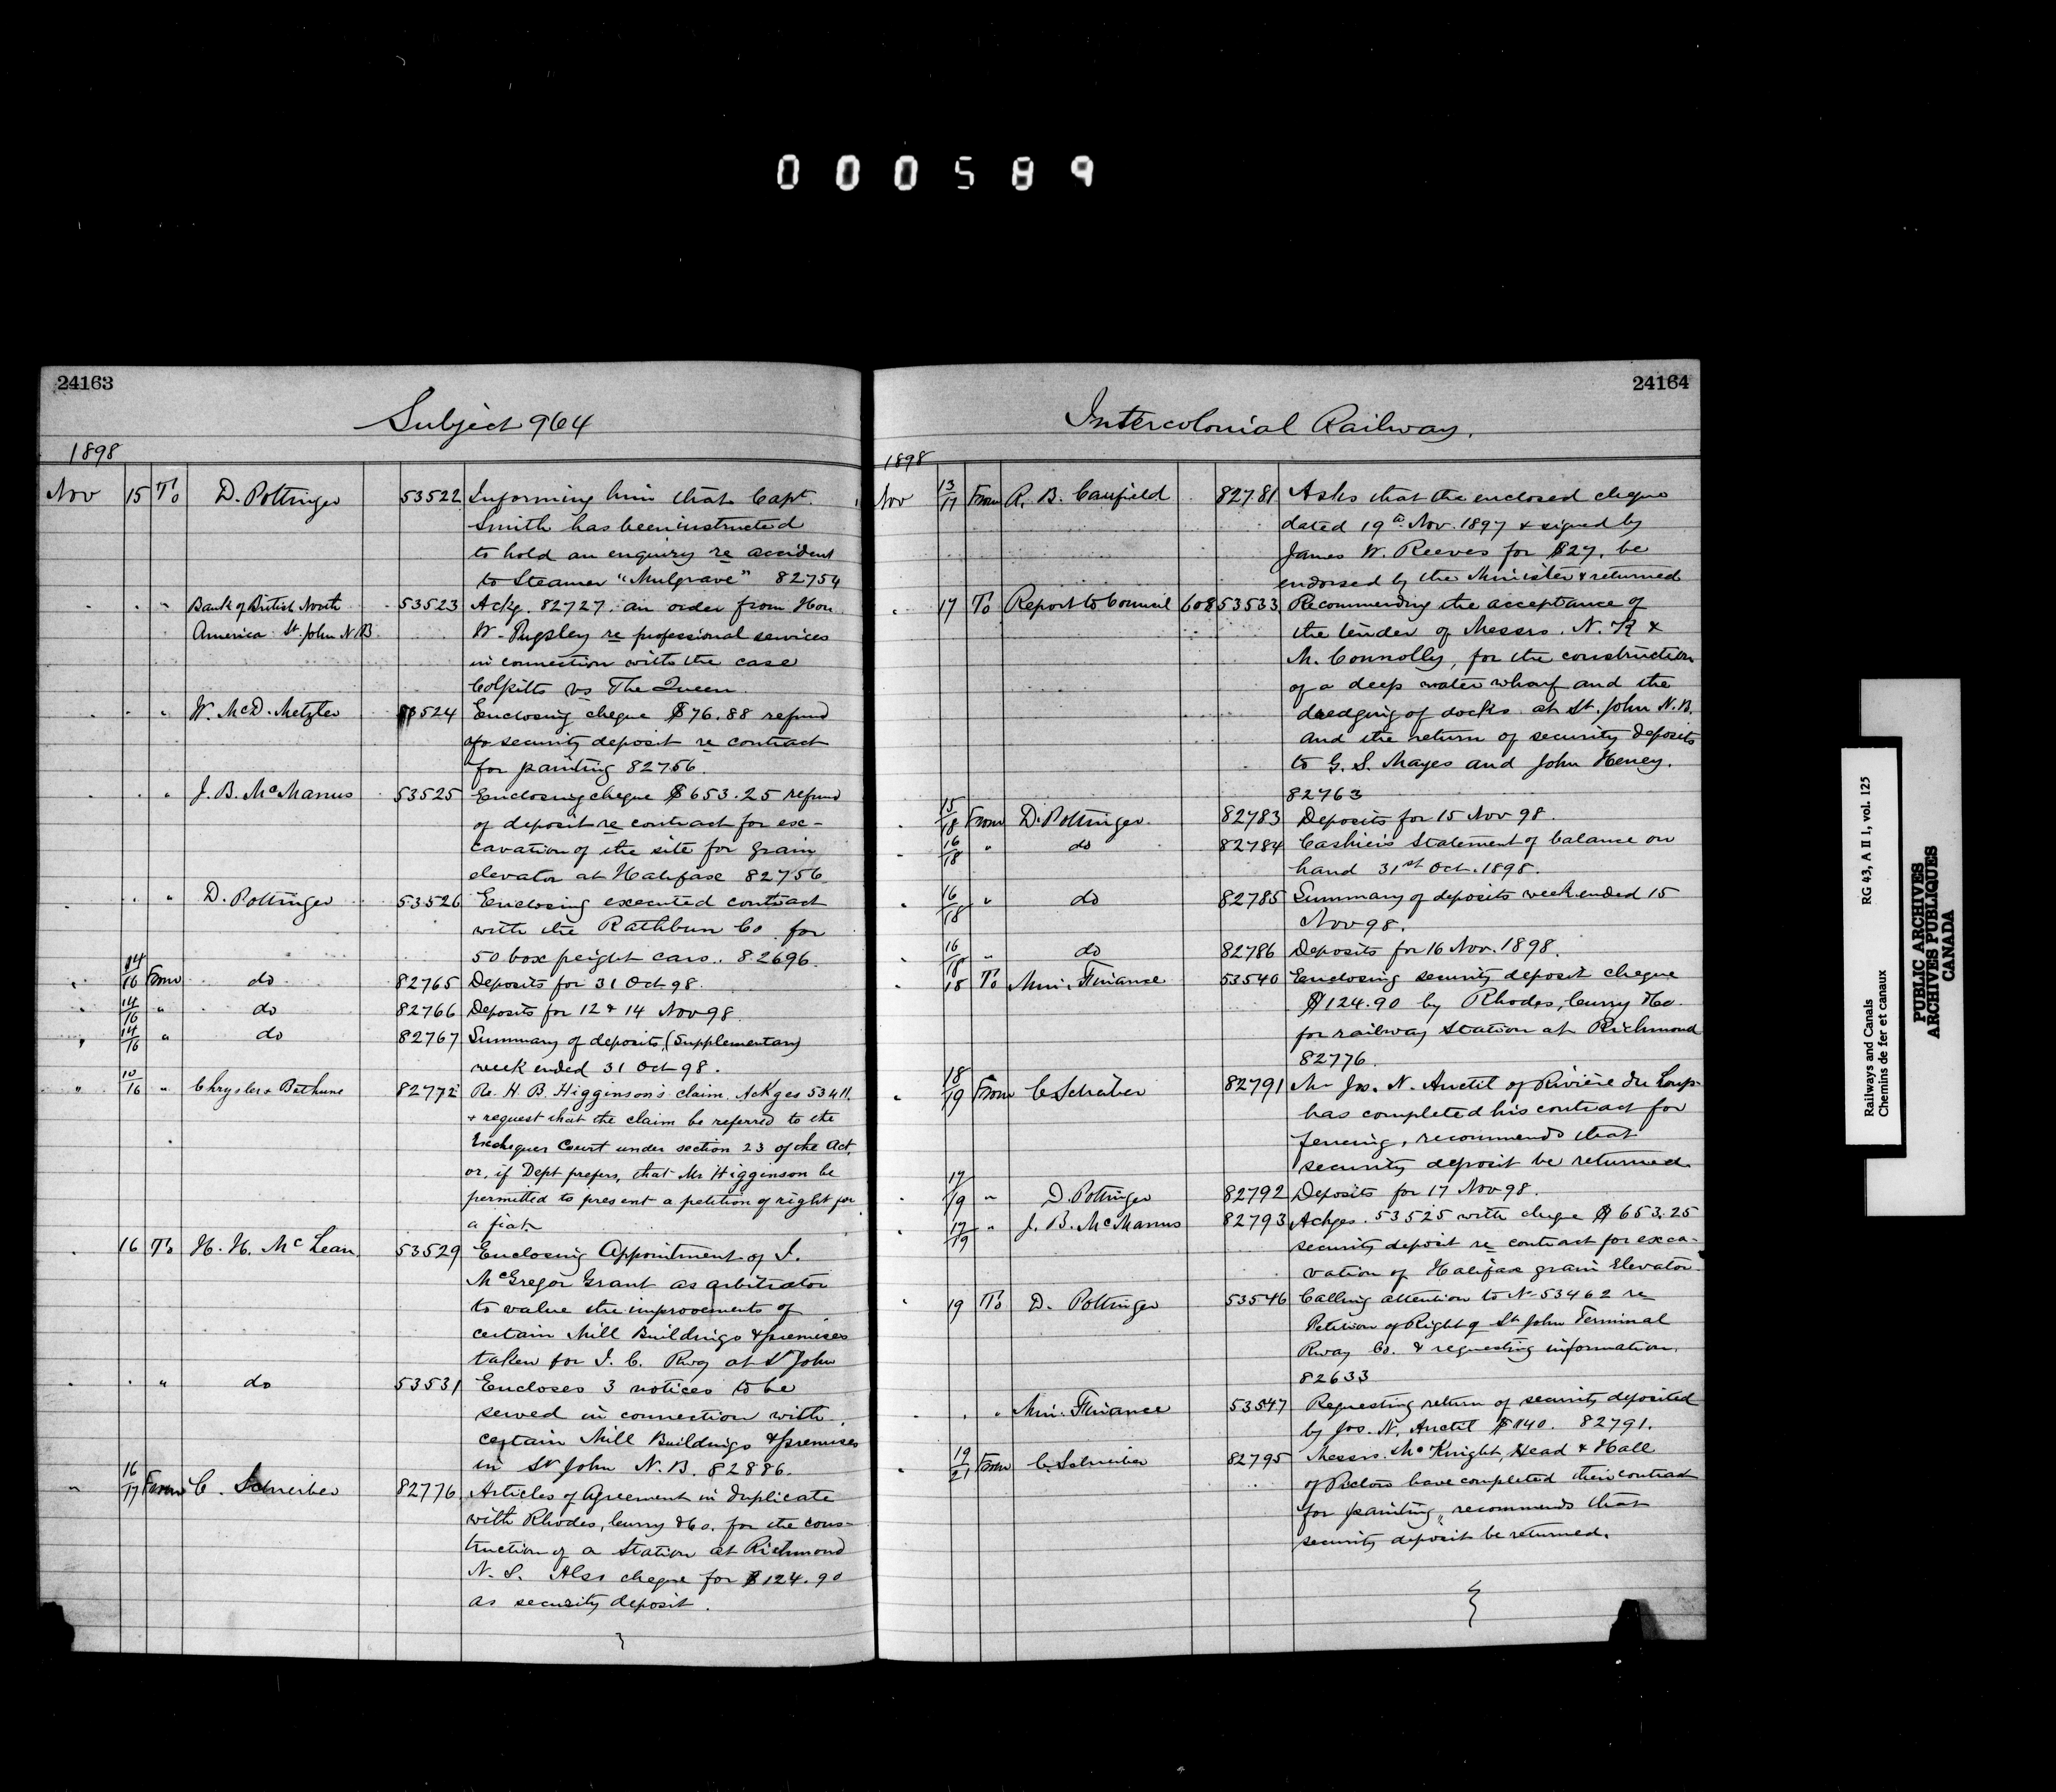 000589
24163
Subject 964
1898
Nov 15 To D. Pottinger 53522 Informing him that Capt.
Smith has been instructed
to hold an enquiry re accident
to Steamer "Mulgrave" 82754
" " " Bank of British North 53523 Ackg. 82727 an order from Hon
America St. John N.B. W. Pugsley re professional services
in connection with the case
Colpitts vs The Queen
" " " W. McD. Metzler 53524 Enclosing cheque $76.88 refund
of security deposit re contract
for painting 82756.
" " " J. B. McManus 53525 Enclosing cheque $653.25 refund
of deposit re contract for exc-
cavation of the site for grain
elevator at Halifax 82756
" " " D. Pottinger 53526 Enclosing executed contract
with the Rathbun Co for
50 box freight cars. 82696
" 14/16 From do 82765 Deposits for 31 Oct 98.
" 14/16 " do 82766 Deposits for 12 & 14 Nov 98
" 14/16 " do 82767 Summary of deposits, (Supplementary)
week ended 31 Oct 98.
" 10/16 " Chrysler & Bethune 82772 Re. H. B. Higginson's claim. Ackges 53411,
& request that the claim be referred to the
Exchequer Court under section 23 of the Act,
or, if Dept prefers, that Mr Higginson be
permitted to present a petition of right for
a fiat
" 16 To H. H. McLean 53529 Enclosing Appointment of I.
McGregor Grant as arbitrator
to value the improvements of
certain Mill Buildings & premises
taken for I. C. Rwy at St John
" " " do 53531 Encloses 3 notices to be
served in connection with
certain Mill Buildings & premises
in St John N. B. 82886.
" 16/17 From C. Schreiber 82776 Articles of Agreement in duplicate
with Rhodes, Curry & Co. for the cons-
truction of a Station at Richmond
N. S. Also cheque for $124.90
as security deposit.
24164
Intercolonial Railway.
1898
Nov 13/17 From R. B. Caufield 82781 Asks that the enclosed cheque
dated 19th Nov. 1897 & signed by
James W. Reeves for $27. be
endorsed by the Minister & returned
" 17 To Report to Council 608 53533 Recommending the acceptance of
the tender of Messrs. N. K &
M. Connolly, for the construction
of a deep water wharf and the
dredging of docks at St. John N.B.
and the return of security deposits
to G. S. Mayes and John Heney.
82763
" 15/18 From D. Pottinger 82783 Deposits for 15 Nov 98.
" 16/18 " do 82784 Cashier's Statement of balance on
hand 31st Oct. 1898.
" 16/18 " do 82785 Summary of deposits week ended 15
Nov 98.
" 16/18 " do 82786 Deposits for 16 Nov. 1898.
" 18 To Min. Finance 53540 Enclosing security deposit cheque
$124.90 by Rhodes, Curry & Co.
for railway Station at Richmond
82776.
" 18/19 From C Schreiber 82791 Mr Jos. N. Anctil of Rivière du Loup
has completed his contract for
fencing, recommends that
security deposit be returned.
" 17/19 " D. Pottinger 82792 Deposits for 17 Nov 98.
" 17/19 " J. B. McManus 82793 Ackges. 53525 with cheque $653.25
security deposit re contract for exca-
vation of Halifax grain Elevator
" 19 To D. Pottinger 53546 Calling attention to No 53462 re
Petition of Right of St John Terminal
Rway Co. & requesting information.
82633
" " " Min. Finance 53547 Requesting return of security deposited
by Jos. N. Anctil $140. 82791.
" 19/21 From C. Schreiber 82795 Messrs. McKnight, Head & Hall
of Pictou have completed their contract
for painting, recommends that
security deposit be returned.
Railways and Canals RG 43, A II 1, vol. 125
Chemins de fer et canaux
PUBLIC ARCHIVES
ARCHIVES PUBLIQUES
CANADA